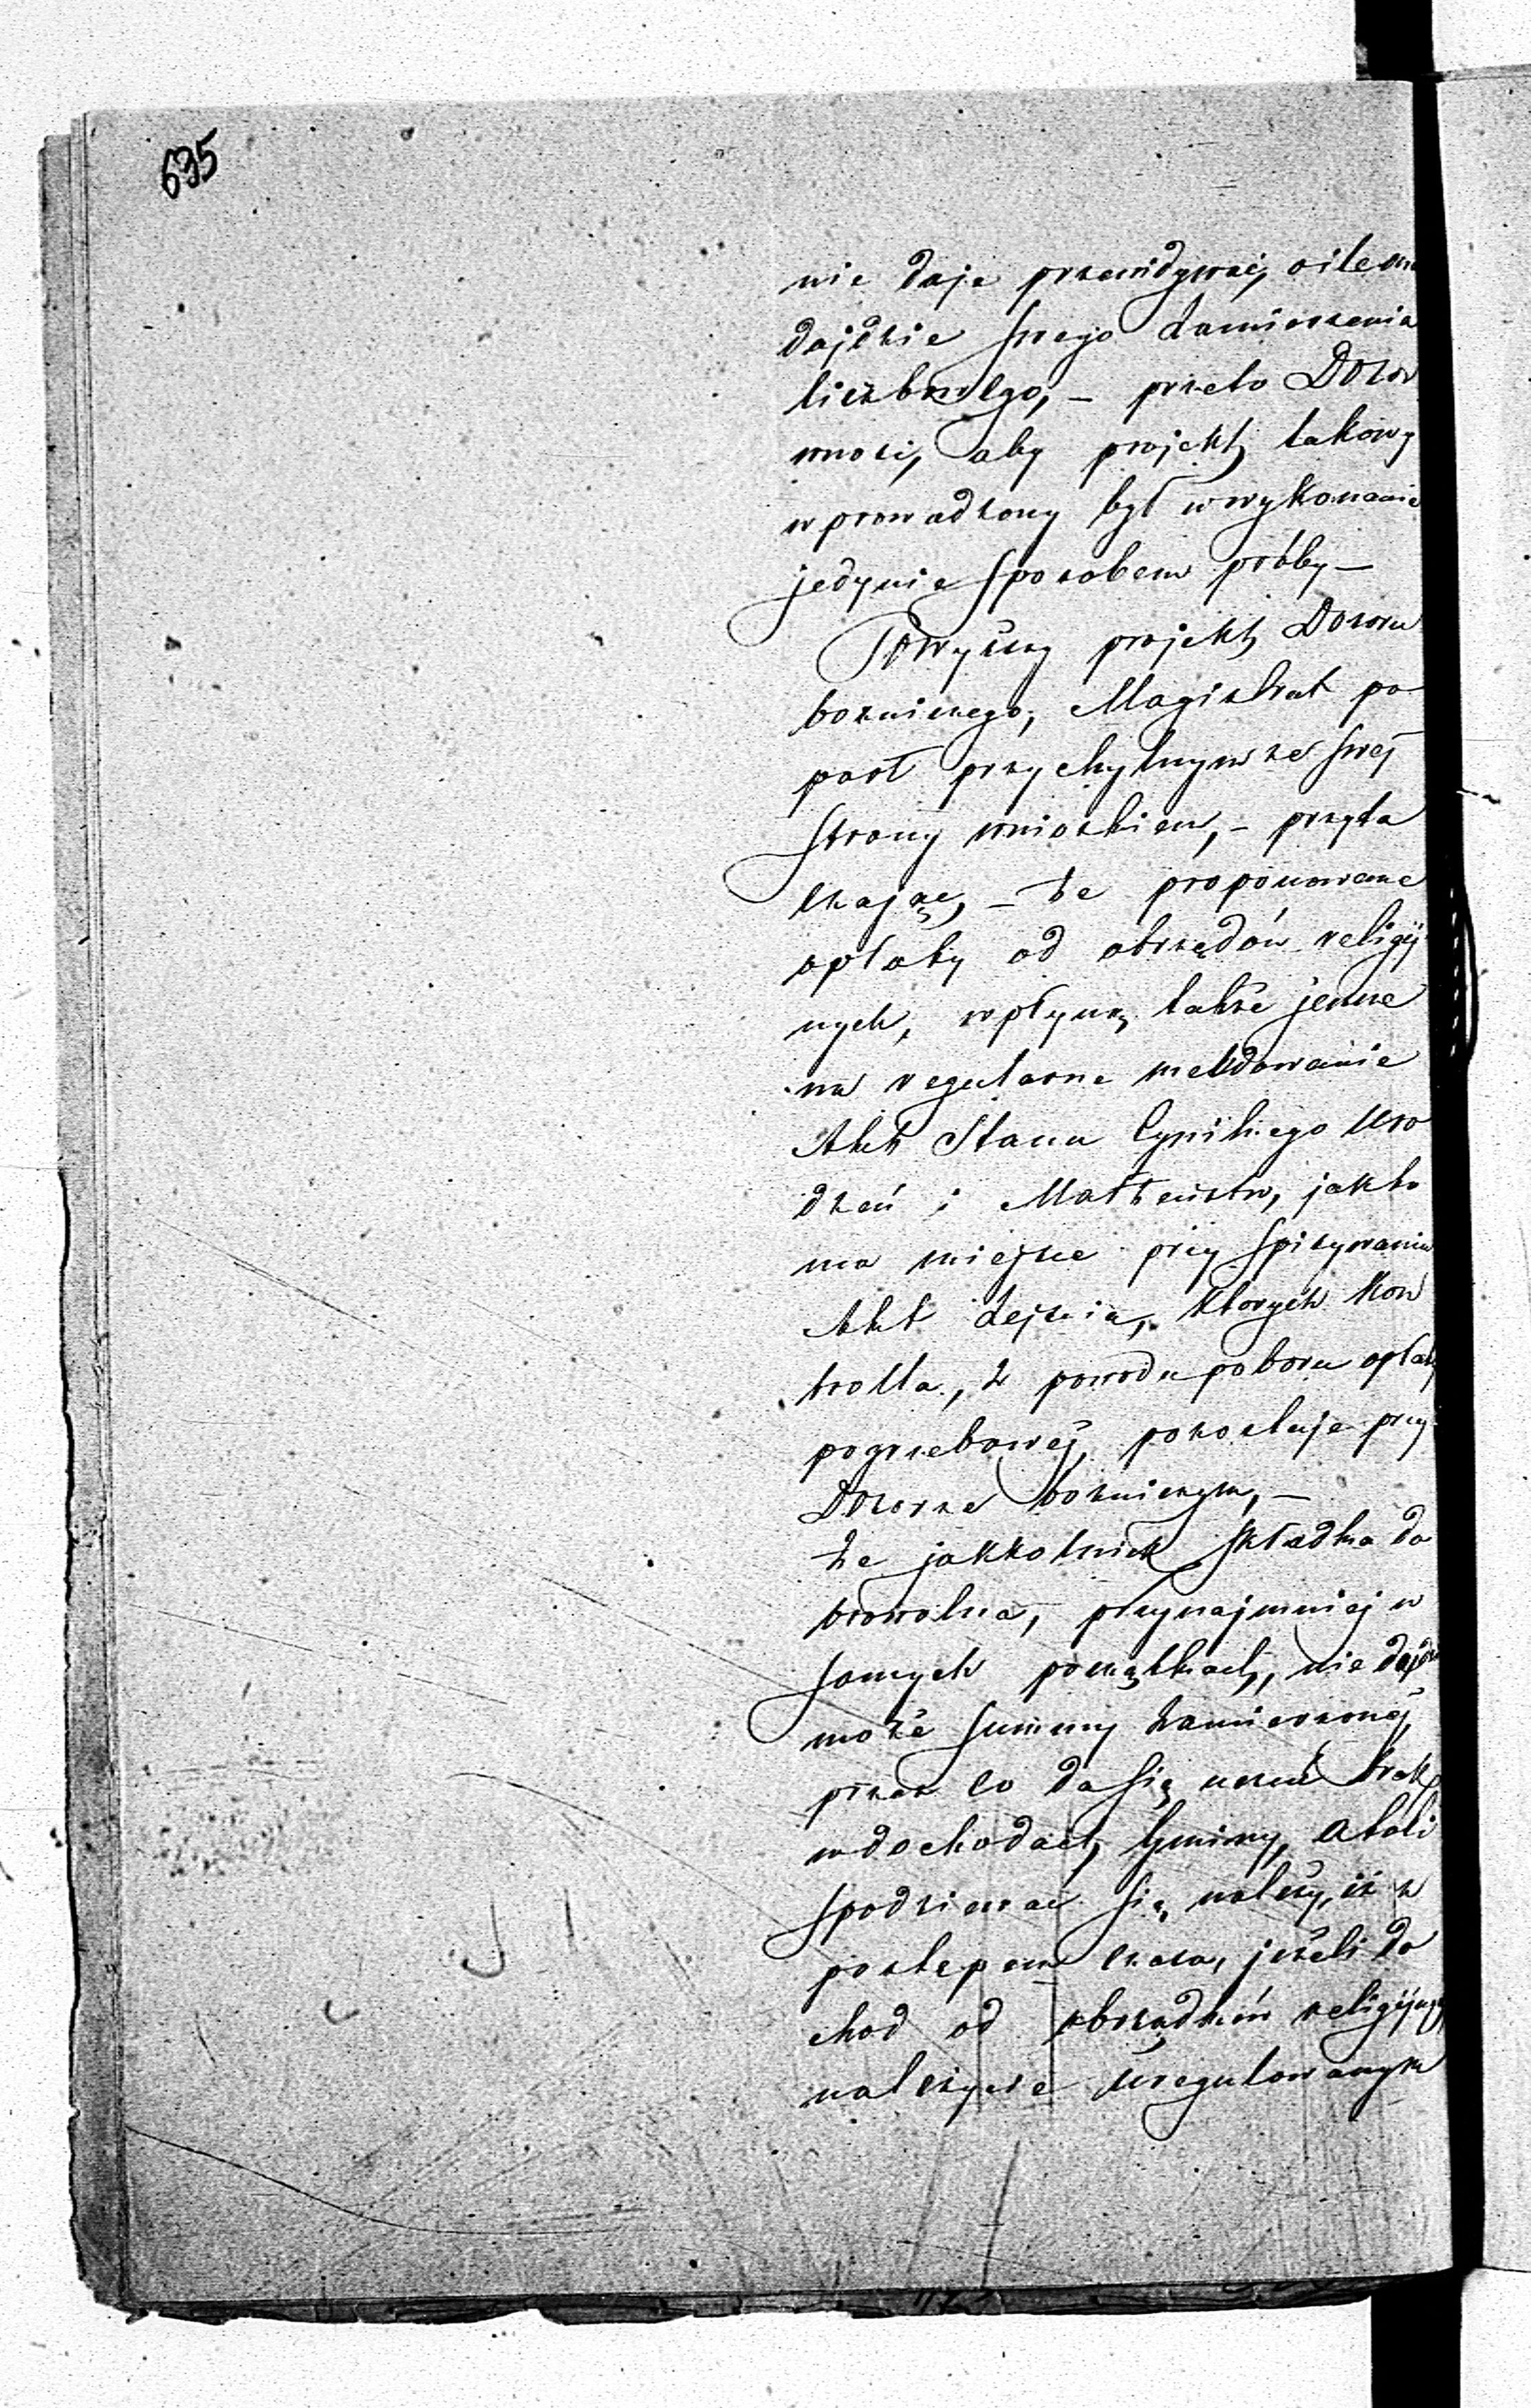 635
nie daje przewidywać, o ile
dojdzie swego zamierzenia
liczbowego, – przeto Dozor
wnosi, aby projekt takowy
wprowadzony był w wykonanie
jedynie sposobem próby –
Powyższy projekt Dozoru
boznicznego, Magistrat po-
parł przychylnym ze swej
strony wnioskiem, – przyta
czając, – że proponowane
opłaty od obrzędów religij
nych, wpłyną także jeszcze
na regularne meldowanie
Akt Stanu Cywilnego Uro
dzeń i Małżeństw, jak to
ma miejsce przy spisywaniu
Akt Zejścia, których Kon
trolla, z powodu poboru opłaty
pogrzebowej, pozostaje przy
Dozorze boznicznym, –
że jakkolwiek składka do
browolna, przynajmniej w
samych początkach, nie dojdzie
może summy zamierzonej
przez co da się uczuć brak
w dochodach Gminy, atoli
spodziewać się należy, iż z
postępem czasu, jeżeli do
chod od obrządków religijnych
należycie uregulowanym